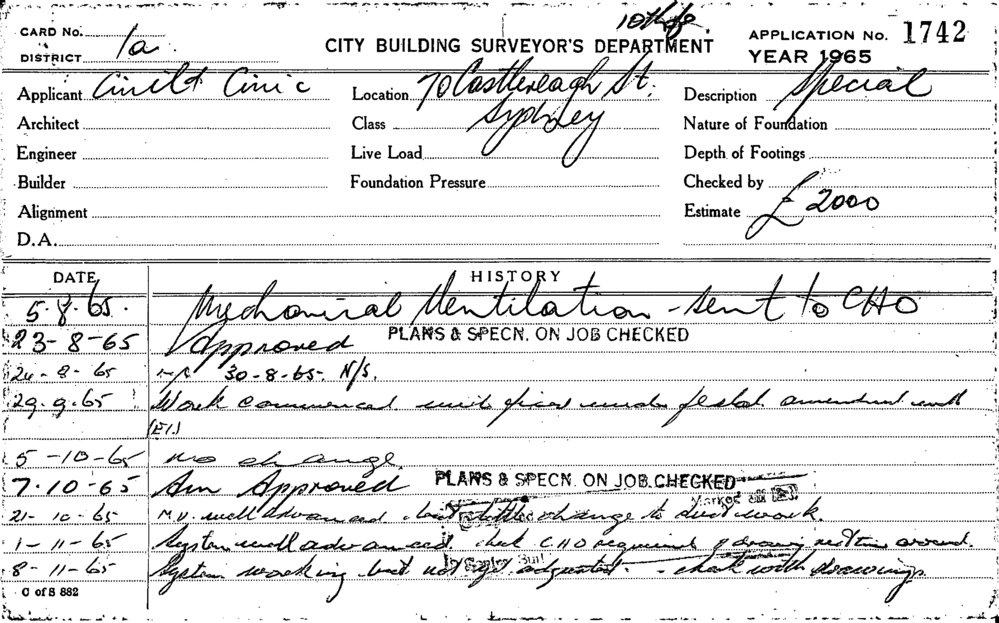 10th flo.
CARD No.
DISTRICT 1a
CITY BUILDING SURVEYOR'S DEPARTMENT
APPLICATION No. 1742
YEAR 1965
Applicant Civil & Civic
Location 70 Castlereagh St.
Sydney
Description Special
Architect
Class
Nature of Foundation
Engineer
Live Load
Depth of Footings
Builder
Foundation Pressure
Checked by
Alignment
Estimate £2000
D.A.
DATE HISTORY
5.8.65. Mechanical Ventilation - sent to CHO
23-8-65 Approved PLANS & SPECN. ON JOB CHECKED
24-8-65 30-8-65. N/S.
29.9.65 Work commenced amendment
(E1.)
5-10-65 no change.
7.10-65 Am Approved PLANS & SPECN. ON JOB CHECKED
Marked
21-10-65 M.V. well advanced but little change to duct work.
1-11-65 System well advanced check CHO
8-11-65 System working but not yet adjusted - check with drawings
C of S 882